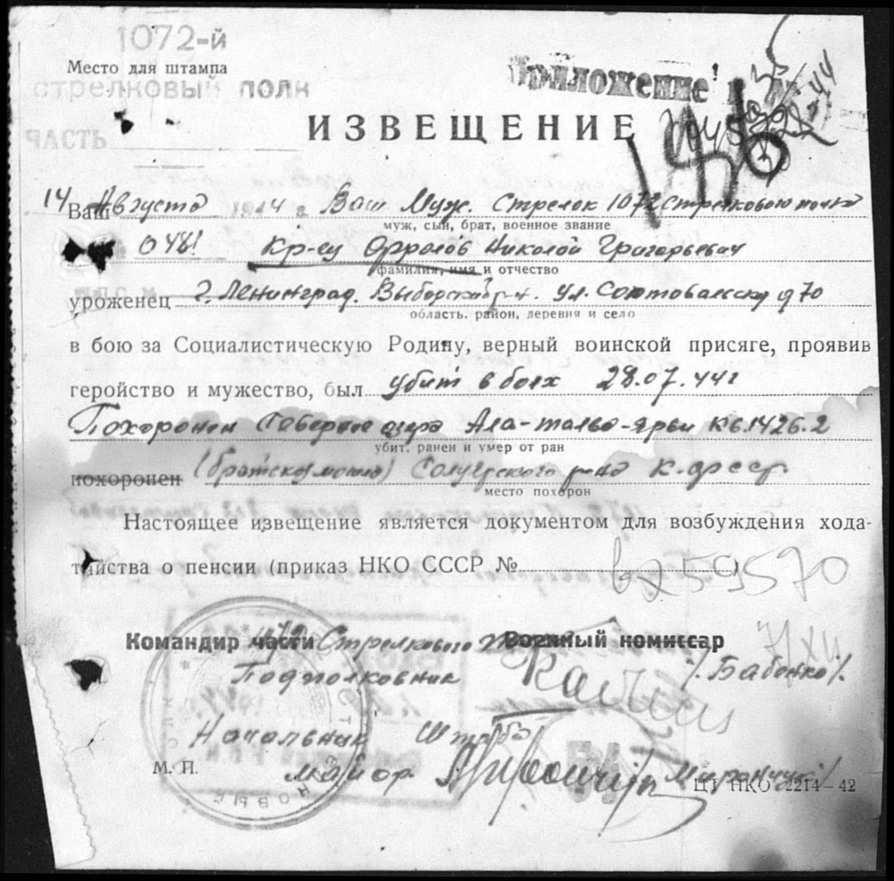 1072-й
Место для штампа
стрелковый полк
Приложение
ЧАСТЬ
ИЗВЕЩЕНИЕ
14 Августа 1944 г. Ваш Муж. Стрелок 1072 Стрелкового полка
муж, сын, брат, военное звание
Кр-ец Николай Григорьевич
фамилия, имя и отчество
уроженец г. Ленинград. Выборгский р-н. ул. д 70
область, район, деревня и село
в бою за Социалистическую Родину, верный воинской присяге, проявив
геройство и мужество, был убит в боях 28.07.44г
Похоронен озера кв. 1426.2
убит, ранен и умер от ран
похоронен (братская могила) р-на К-Ф ССР
место похорон
Настоящее извещение является документом для возбуждения хода-
тайства о пенсии (приказ НКО СССР №
вх 59570
Командир части Стрелкового Военный комиссар
Подполковник /. Бабенко /.
Начальник Штаба
М. П. майор Мирончук /.
ЦТ НКО 2214—42